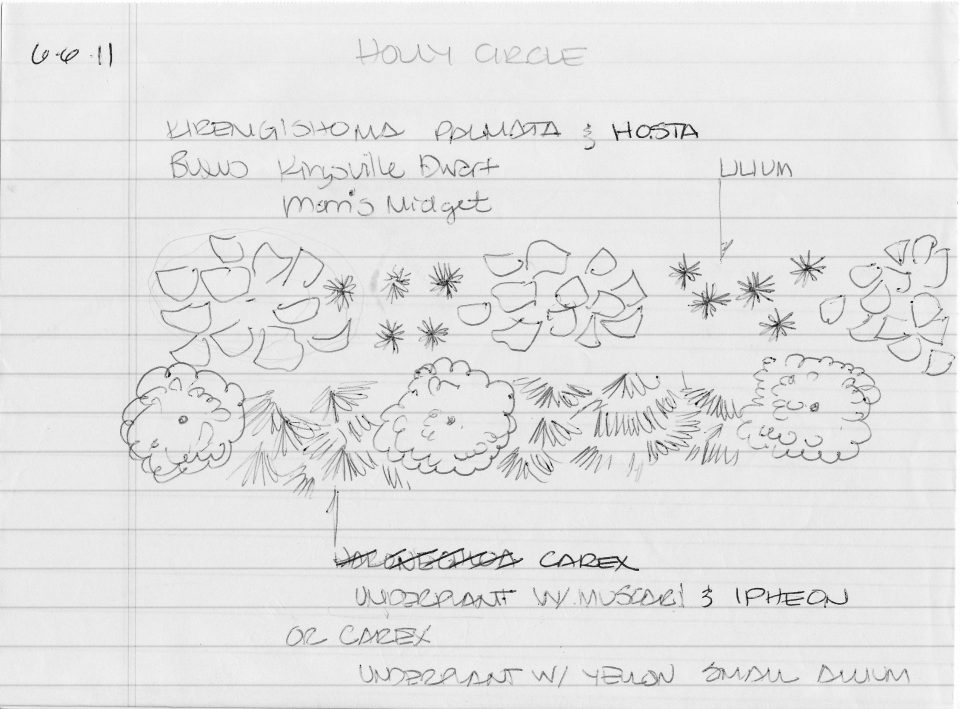 6·6·11
HOLLY CIRCLE
KIRENGISHOMA PALMATA & HOSTA
Buxus Kingsville Dwarf
Morris Midget
LILIUM
CAREX
UNDERPLANT W/ MUSCARI & IPHEON
OR CAREX
UNDERPLANT W/ YELLOW SMALL ALLIUM